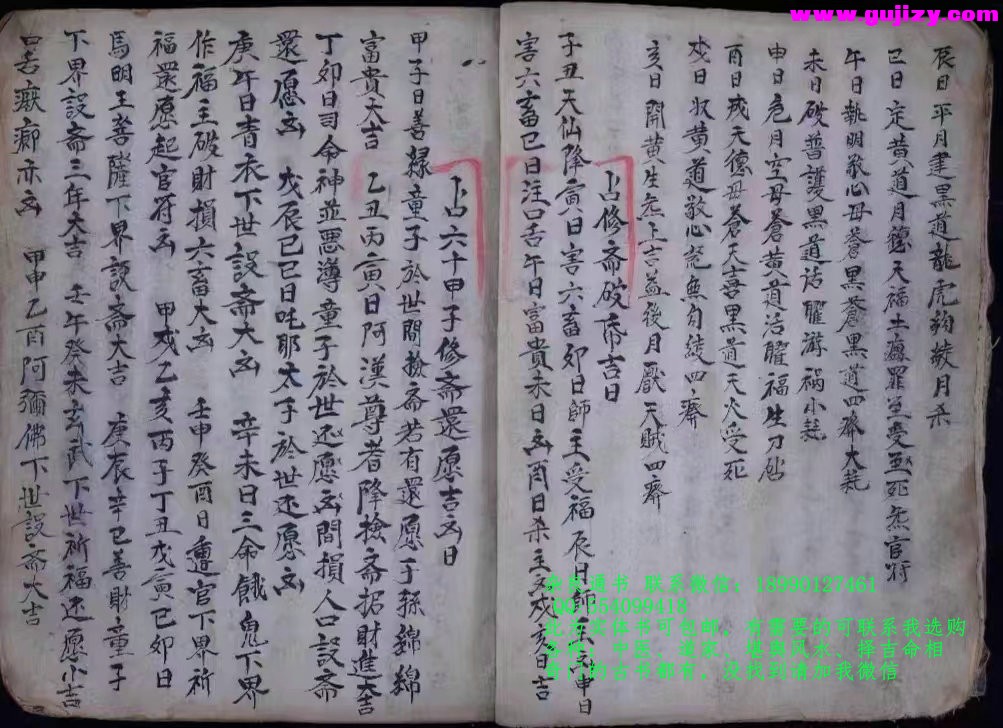 www.gujizy.com
辰日平月建黑道龍虎鉤絞月杀
巳日定黄道月德天福土瘟罪至受死無官符
午日執明敬心母蒼黑蒼黑道四廢大耗
未日破普護黑道活曜游禍小耗
申日危月空母蒼黄道活曜福生刀砧
酉日成天德母蒼天喜黑道天火受死
戌日收黄道敬心荒無勾絞四廢
亥日開黄生炁上吉益後月厭天贼四廢
占修斋破券吉日
子丑天仙降寅日害六畜卯日師主受福辰日師至申日
害六畜巳日注口舌午日富貴未日凶酉日杀主文戌亥日吉
占六十甲子修斋還愿吉凶日
甲子日善禄童子於世間撿斋若有還愿子孫綿綿
富貴大吉 乙丑丙寅日阿漢尊者降撿斋招財進大吉
丁卯日司命神並惡薄童子於世还愿凶間損人口設斋
還愿凶 戊辰己巳日吒耶太子於世还愿凶
庚午日青衣下世設斋大凶 辛未日三命餓鬼下界
作福主破財損六畜大凶 壬申癸酉日遭官下界祈
福還愿起官符凶 甲戌乙亥丙子丁丑戊寅己卯日
馬明王菩薩下界設斋大吉 庚辰辛巳善財童子
下界設斋三年大吉 壬午癸未玄武下世祈福还愿小吉
口舌瘷癤亦凶 甲申乙酉阿彌佛下世設斋大吉
杂家通书 联系微信：18990127461
QQ:554099418
此为实体书可包邮，有需要的可联系我选购
各种：中医、道家、堪舆风水、择吉命相
奇门的古书都有，没找到请加我微信